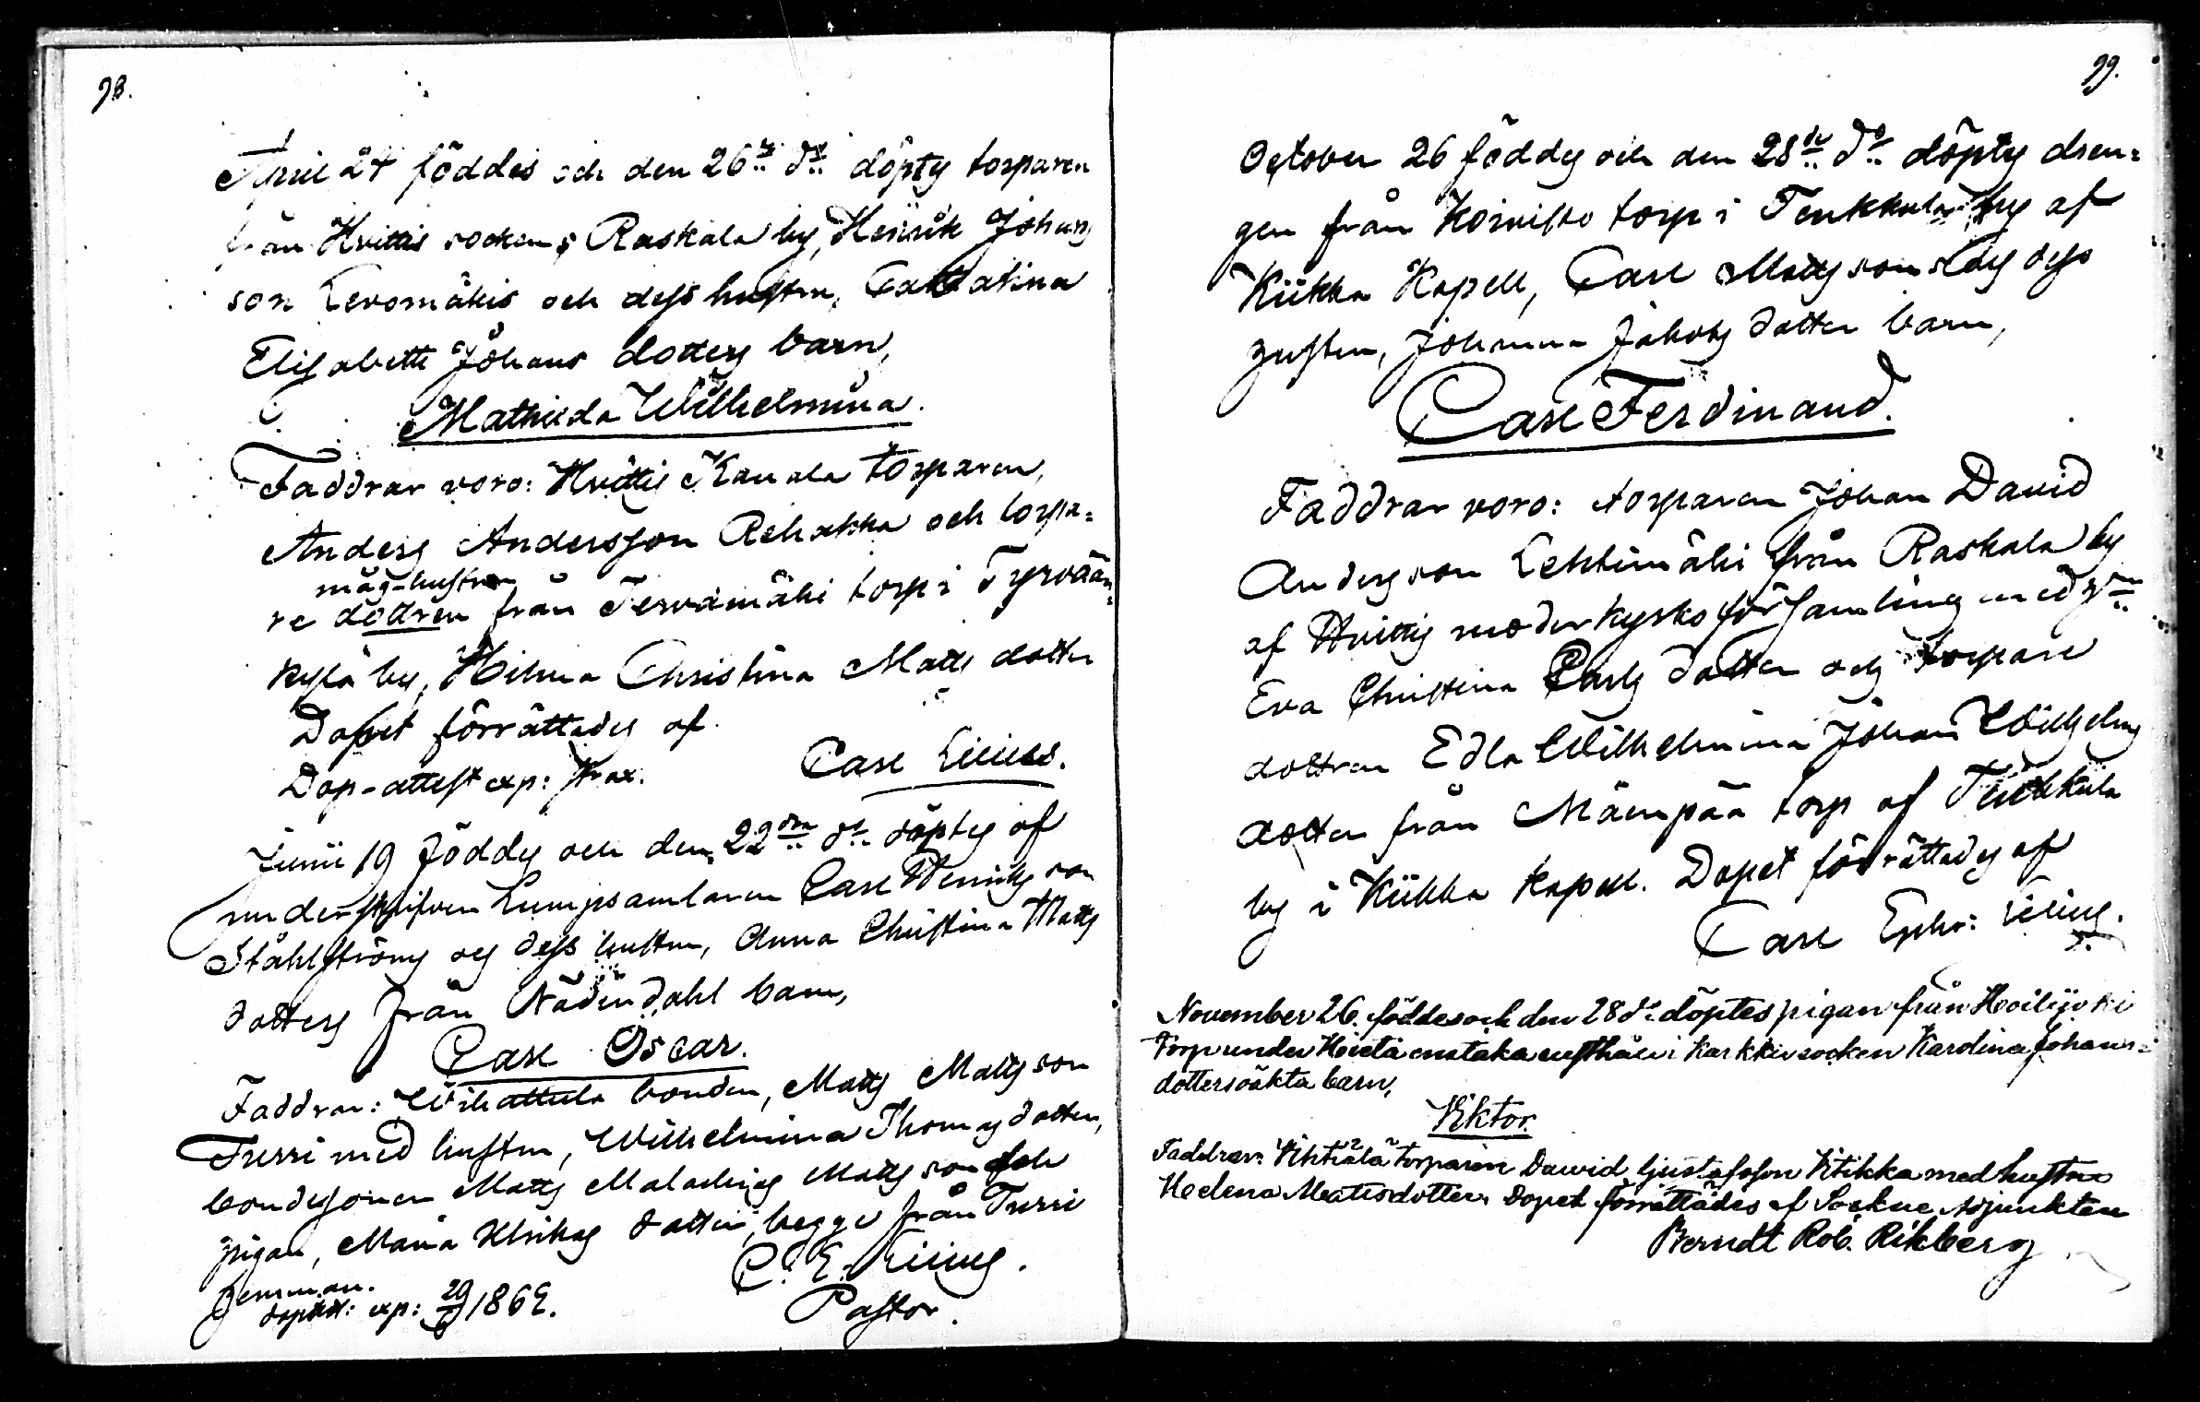 98.
April 24 föddes och den 26te do döptes torparen
från Hvittis sockens Raskala by, Henrik Johans
son Levomäkis och dess hustru, Catharina
Elisabeth Johans dotters barn,
Mathilda Wilhelmina.
Faddrar voro: Hvittis Kauala torparen,
Anders Andersson Rehakka och torpa=
måg-hustrun
re dottren från Tervamäki torp i Tyrvään=
kylä by, Hilma Christina Matts dotter
Dopet förrättades af
Dop-attest exp: strax. Carl Lilius.
Junii 19 föddes och den 22dra do döptes af
underskrifven Lumpsamlaren Carl Henriks son
Ståhlströms och dess hustru, Anna Christina Matts
dotters från Nådendahl barn,
Carl Oscar.
Faddrar: bonden, Matts Matts son
Turri med hustru, Wilhelmina Thomas dotter,
bondesonen Matts Matts son och
pigan, Maria Ulrika dotter, begge från Turri
hemman. C. E. Lilius.
dopatt: exp: 29/6 1862. Pastor.
99.
October 26 föddes och den 28de do döptes dren=
gen från Koivisto torp i Tenkkula by af
Kiikka Kapell, Carl Matts sons och dess
hustru, Johanna Jakobs dotter barn,
Carl Ferdinand.
Faddrar voro: torparen Johan David
Anders son Lehtimäki från Raskala by
af Hvittis moderkyrko församling med
Eva Christina Carls dotter och torpare
dottren Edla Wilhelmina Johan Wilhelms
dotter från Mäenpää torp af Tenkkula
by i Kiikka kapell. Dopet förrättades af
Carl Ephr: Lilius.
November 26. föddes och den 28 do döptes pigan från
torp under enstaka rusthåll i Karkku socken Karolina Johans=
dotters oäkta barn,
Viktor.
Faddrar: torparen Dawid Gustafsson Vitikka med hustru
Helena Matsdotter. Dopet förrättades af Sockne Adjunkten
Berndt Rob. Rikberg